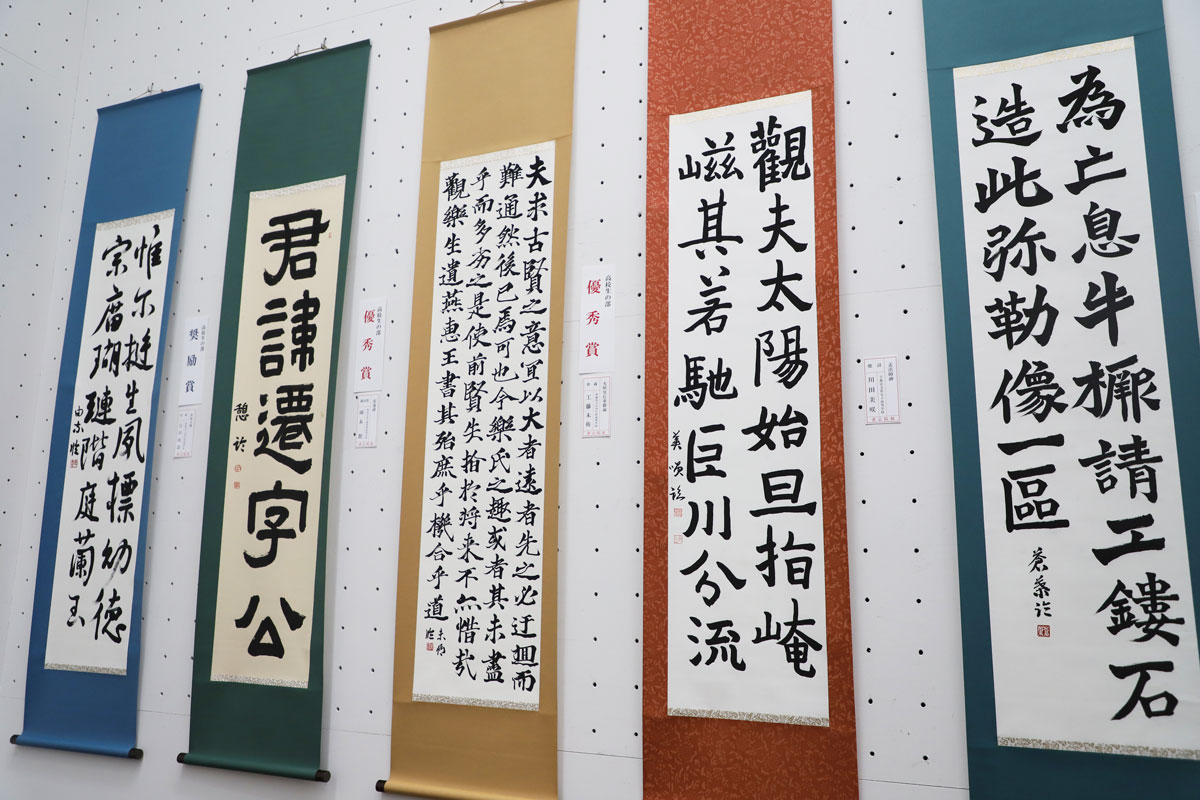 為亡息牛橛請工鏤石
造此弥勒像一區
川田美咲
觀夫太陽始旦指崦
嵫其若馳巨川分流
美咲臨
高校生の部
優秀賞
夫求古賢之意宜以大者遠者先之必迂迴而
難通然後已焉可也今樂氏之趣或者其未盡
乎而多劣之是使前賢失指於将来不亦惜哉
觀樂生遺燕惠王書其殆庶乎機合乎道
高校生の部
優秀賞
君諱遷字公
高校生の部
奨励賞
惟尓挺生夙標幼徳
宗廟瑚璉階庭蘭玉